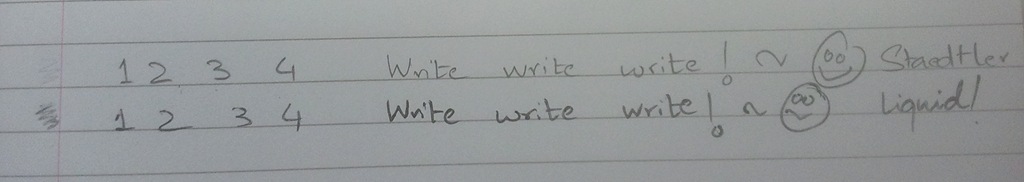 1 2 3 4 Write write write! ~ Staedtler
1 2 3 4 Write write write! ~ Liquid!